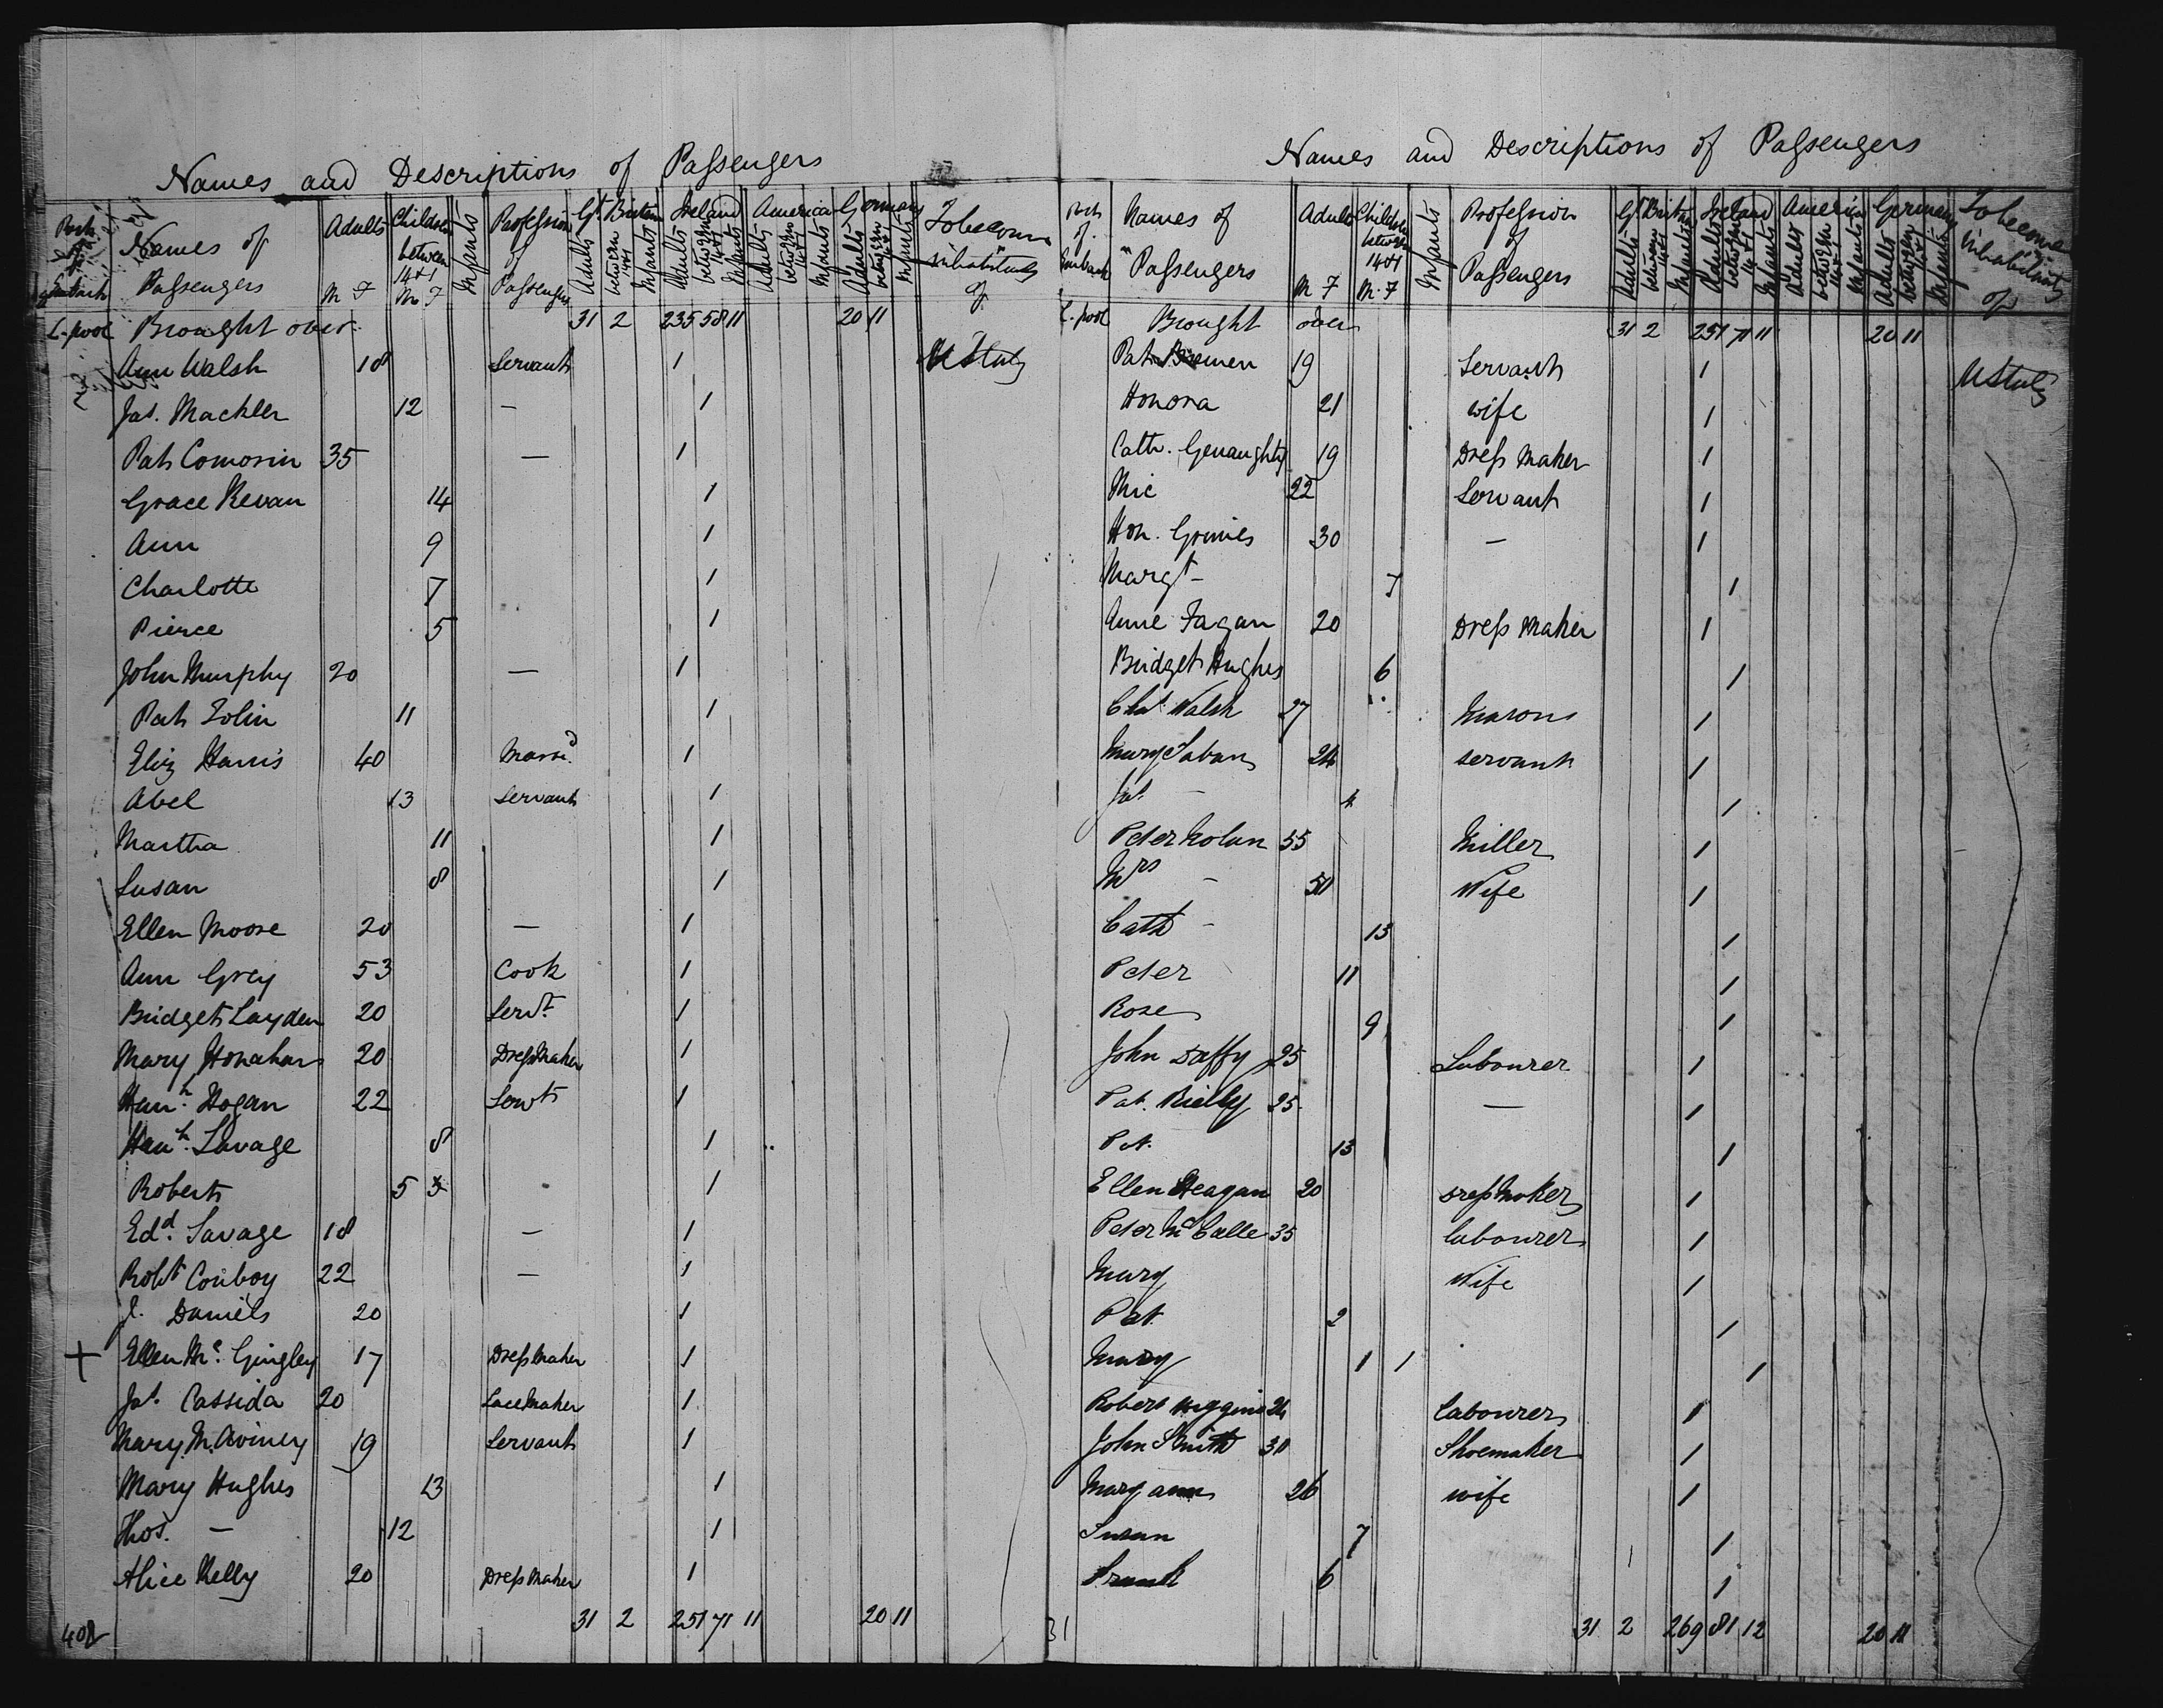 Names and Descriptions of Passengers
Names of Passengers Adults M F Children between 14+1 M F Infants Profession of Passengers Gt. Britain Adults between 14+1 Infants Ireland Adults between 14+1 Infants America Adults between 14+1 Infants Germany Adults between 14+1 Infants To become inhabitants of
L-pool Brought over 31 2 235 58 11 20 11
Ann Walsh 18 Servant 1 U States
Jas. Mackler 12 — 1
Pat Comorin 35 — 1
Grace Kevan 14 1
Ann 9 1
Charlotte 7 1
Pierce 5 1
John Murphy 20 — 1
Pat Tolin 11 1
Eliz Harris 40 Marrd. 1
Abel 13 Servant 1
Martha 11 1
Susan 8 1
Ellen Moore 20 — 1
Ann Grey 53 Cook 1
Bridget Layden 20 Servt 1
Mary Honahan 20 Dress Maker 1
Hanh. Hogan 22 Servt 1
Hanh. Savage 8 1
Robert 5 1
Edd. Savage 18 — 1
Robt Conboy 22 — 1
J. Daniels 20 1
+ Ellen Mc. Gingley 17 Dress Maker 1
Jas. Cassida 20 Lace Maker 1
Mary M. Aviney 19 Servant 1
Mary Hughes 13 1
Thos. — 12 1
Alice Kelly 20 Dress Maker 1
408 31 2 251 71 11 20 11
Names and Descriptions of Passengers
Port of Embark Names of Passengers Adults M F Children between 14+1 M F Infants Profession of Passengers Gt Britain Adults between 14+1 Infants Ireland Adults between 14+1 Infants America Adults between 14+1 Infants Germany Adults between 14+1 Infants To become inhabitants of
L-pool Brought over 31 2 251 71 11 20 11
Pat 19 Servant 1 U States
Honora 21 wife 1
Cath. Genaughty 19 Dress Maker 1
Mic 22 Servant 1
Hon. Grimes 30 — 1
Margt — 7 1
Anne Fagan 20 Dress Maker 1
Bridget Hughes 6 1
Chas Walsh 27 Mason 1
Mary Saban 24 servant 1
Jas. — 4 1
Peter Nolan 55 Miller 1
Mrs — 50 Wife 1
Cath — 13 1
Peter 11 1
Rose 9 1
John Daffy 25 Labourer 1
Pat. Rielly 25 — 1
Pat. 13 1
Ellen Heagan 20 Dress Maker 1
Peter McCalle 35 labourer 1
Mary Wife 1
Pat 2 1
Mary 1 1 1
Robert Higgins 24 labourer 1
John Smith 30 Shoemaker 1
Mary ann 26 wife 1
Susan 7 1
Frank 6 1
31 31 2 269 81 12 20 11